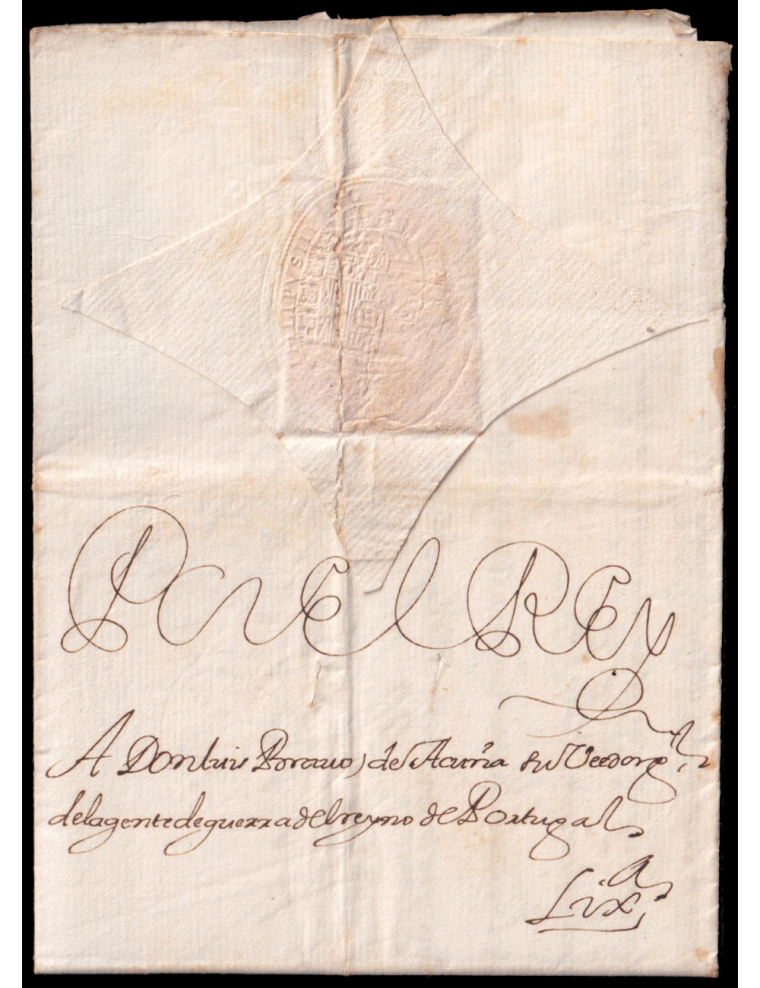 Por El Rey
A Don luis Brauo de Acuña su Veedor gl
de la gente de guerra del reyno de Portugal
Lixa